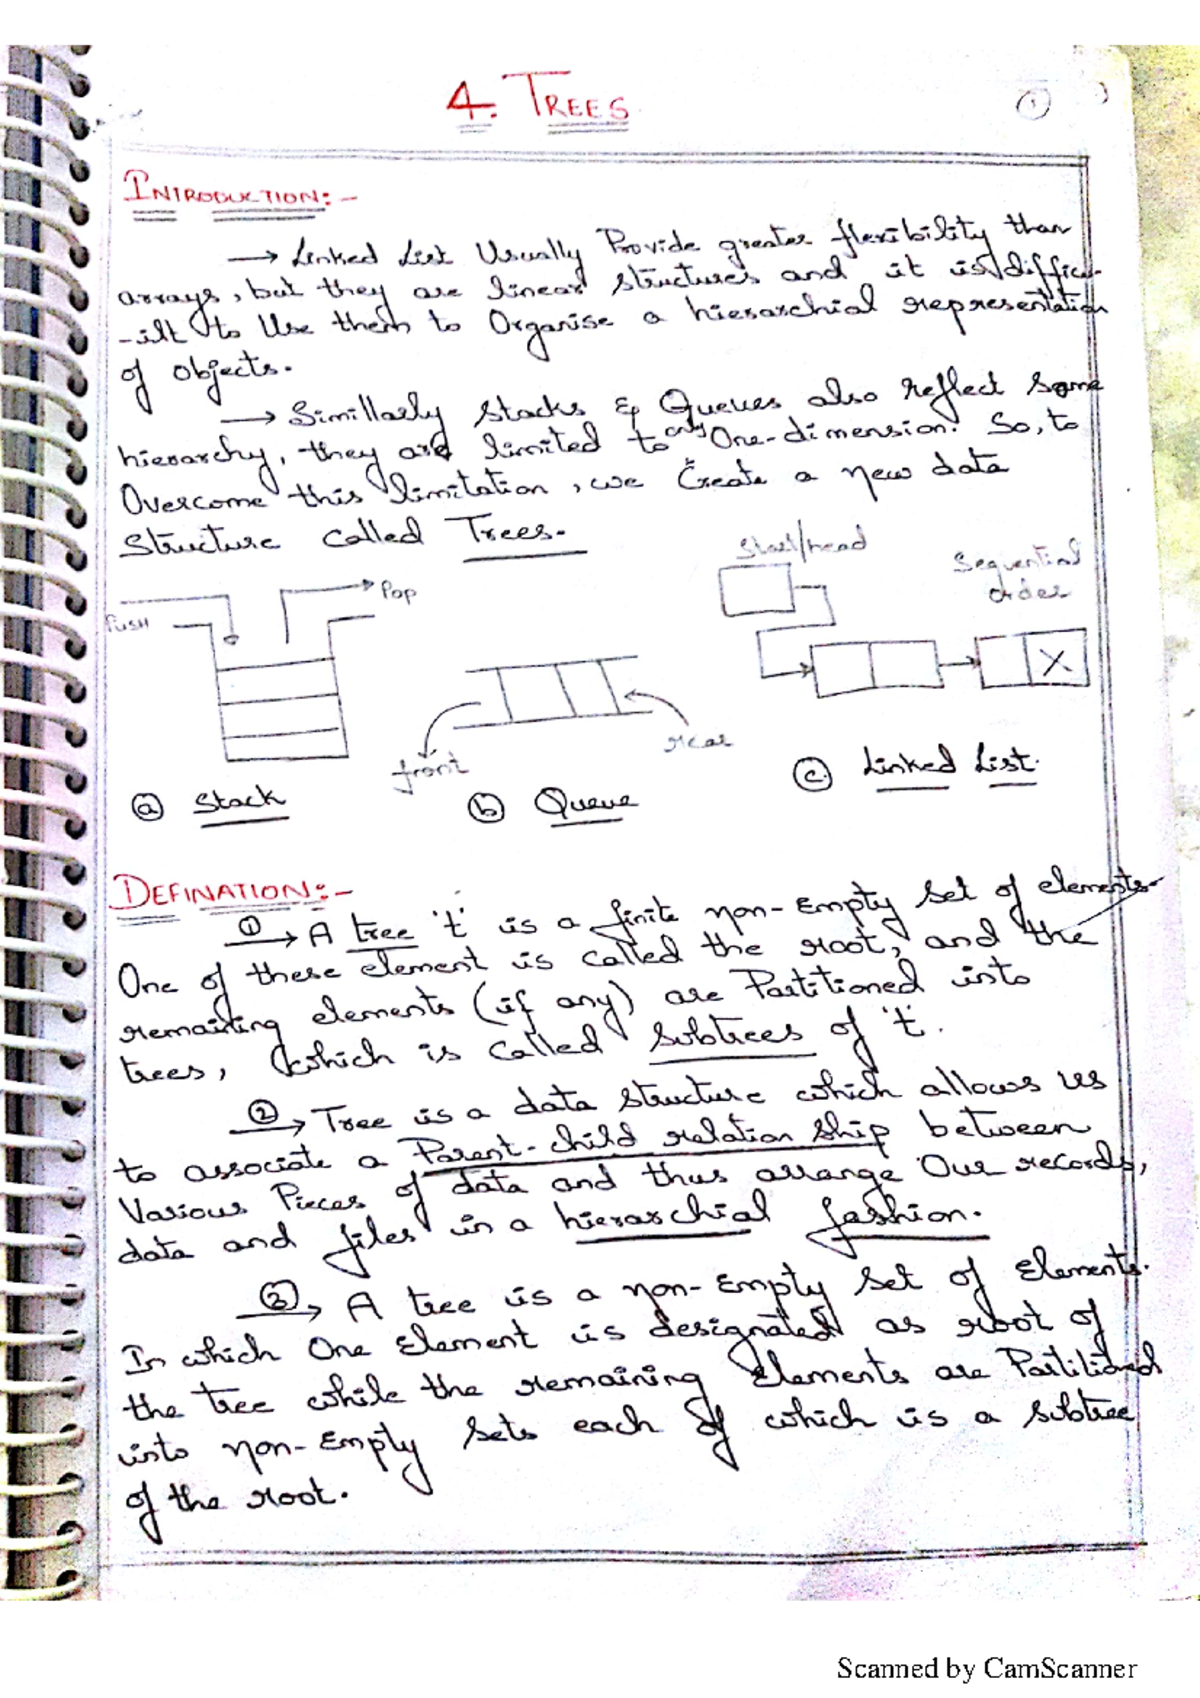 4. TREES
1
INTRODUCTION:-
→ Linked List Usually Provide greater flexibility than
arrays, but they are linear structures and it is diffic-
-ult to Use them to Organise a hierarchial representation
of objects.
→ Simillarly Stacks & Queues also reflect some
hierarchy, they are limited to only One-dimension. So, to
Overcome this limitation, we Create a new data
Structure called Trees.
Start/head
Sequential
order
PUSH
Pop
front
rear
X
(a) Stack
(b) Queue
(c) Linked List.
DEFINATION:-
① → A tree 't' is a finite non-Empty set of elements.
One of these element is called the root, and the
remaining elements (if any) are Partitioned into
trees, which is called Subtrees of 't'.
② → Tree is a data structure which allows us
to associate a Parent-child relation ship between
Various Pieces of data and thus arrange Our records,
data and files in a hierarchial fashion.
③ → A tree is a non-Empty set of Elements.
In which One Element is designated as root of
the tree while the remaining Elements are Partitioned
into non-Empty sets each of which is a subtree
of the root.
Scanned by CamScanner